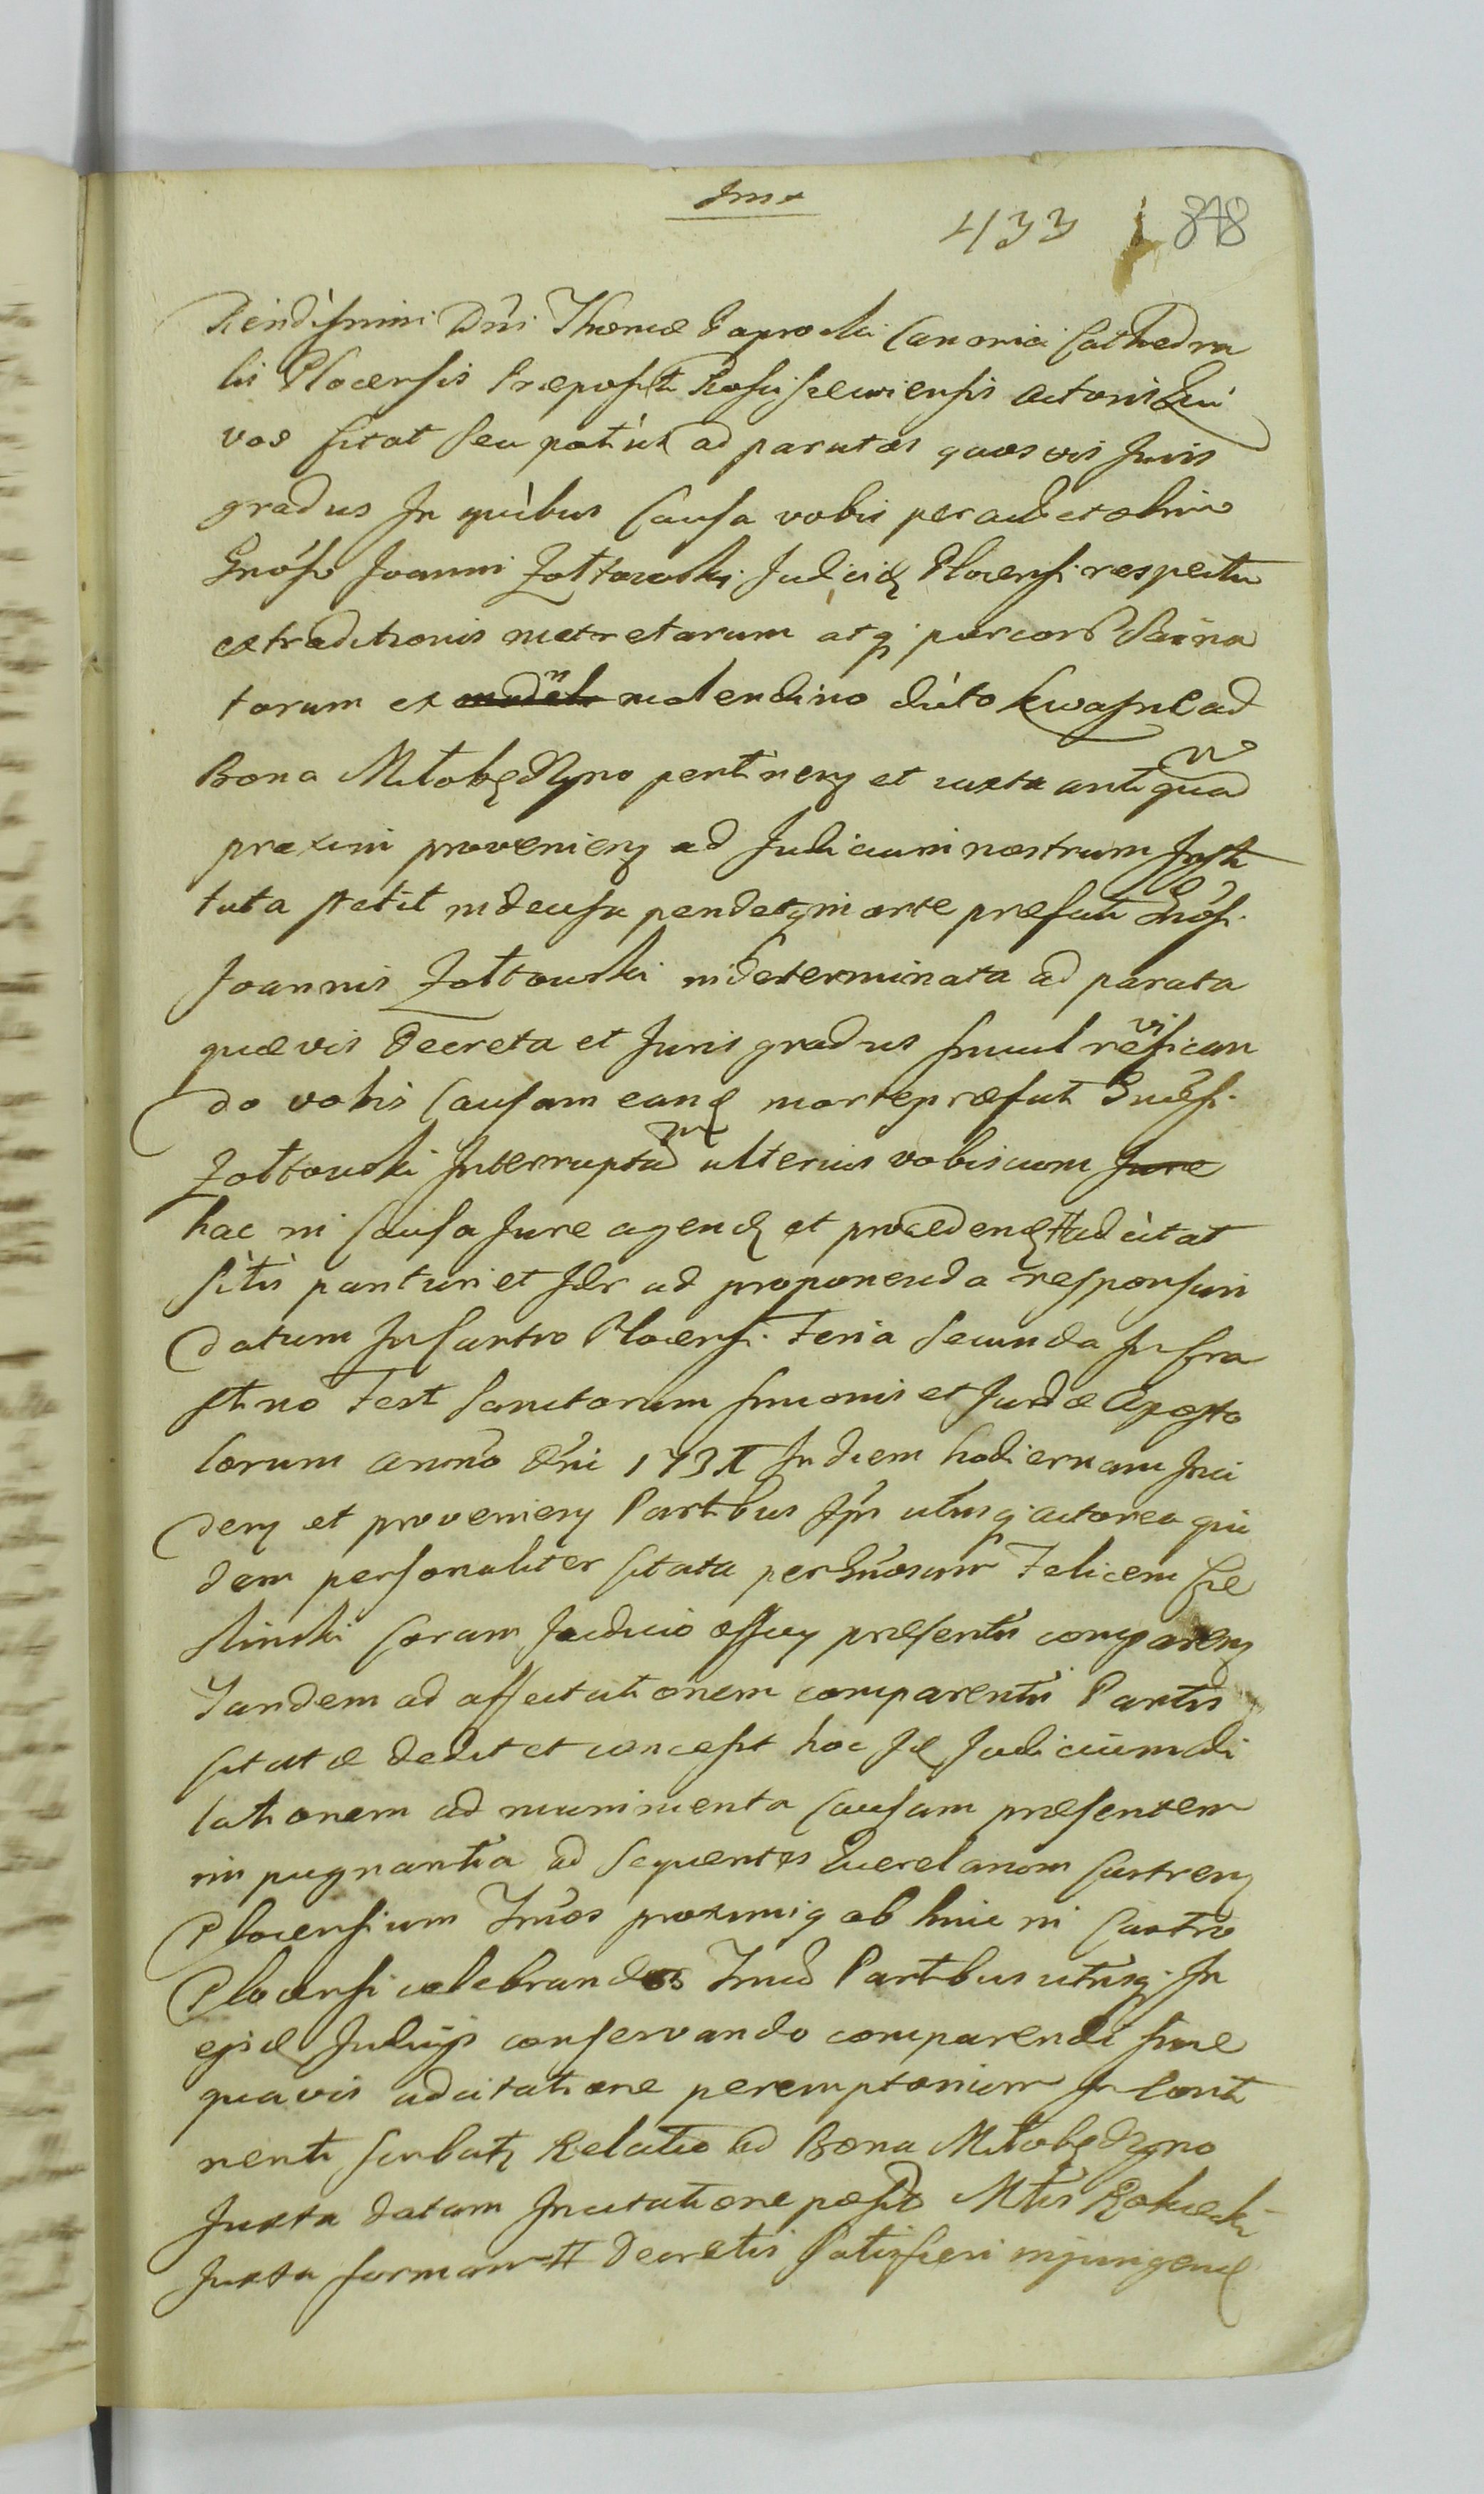 433 848
Rendissimi Dni Thomæ Paprocki Canonici Cathedra
lis Plocensis Præpositi actoris Qui
vos citat seu potius ad paratos quosvis Juris
gradus In quibus Causa vobis per
Gnoso Joanni Zołtowski Judici Plocensi respectu
extraditionis metretarum atq porcor Sagina
torum ex molendino dicto Kwasne ad
Bona Miłobędzyno pertineñ et iuxta antiqua
praxim provenieñ ad Judicium nostrum Insti
tuta stetit indecisa pendet morte præfati Gnosi
Joannis Zołtowski indeterminata ad parata
quævis Decreta et Juris gradus simul
do vobis Causam eand morte præfati Gnosi
Zołtowski Interrupta ulterius vobiscum Jure
hac in Causa Jure agend et procedend adcitat
sitis parituri et Jdr ad proponenda responsuri
datum In Castro Plocensi Feria Secunda In Cra
stino Fest Sanctorum Simonis et Judæ Aposto
lorum anno Dni In diem hodiernam Inci
deñ et provenieñ Partibus Ipis utrisq actorea qui
dem personaliter Citata per Gnosum Felicem Cie
śliński Coram Judicio præsenti compareñ
Tandem ad affectationem comparentis Partis
Citatæ dedit et concessit hoc Jd Judicium di
lationem ad munimenta Causam præsentem
impugnantia ad sequentes Querelarum Castreñ
Plocensium Tnos proximiq ab hinc in Castro
Plocensi celebrandos Tnum Partibus utrisq In
ejsd Judiciis conservando comparendi sine
quavis adcitatione peremptorium In Conti
nenti Relatio ad Bona Miłobędzyno
Juxta datam In citatione posito Mtis
Juxta formam Decretis Satisfieri injungend